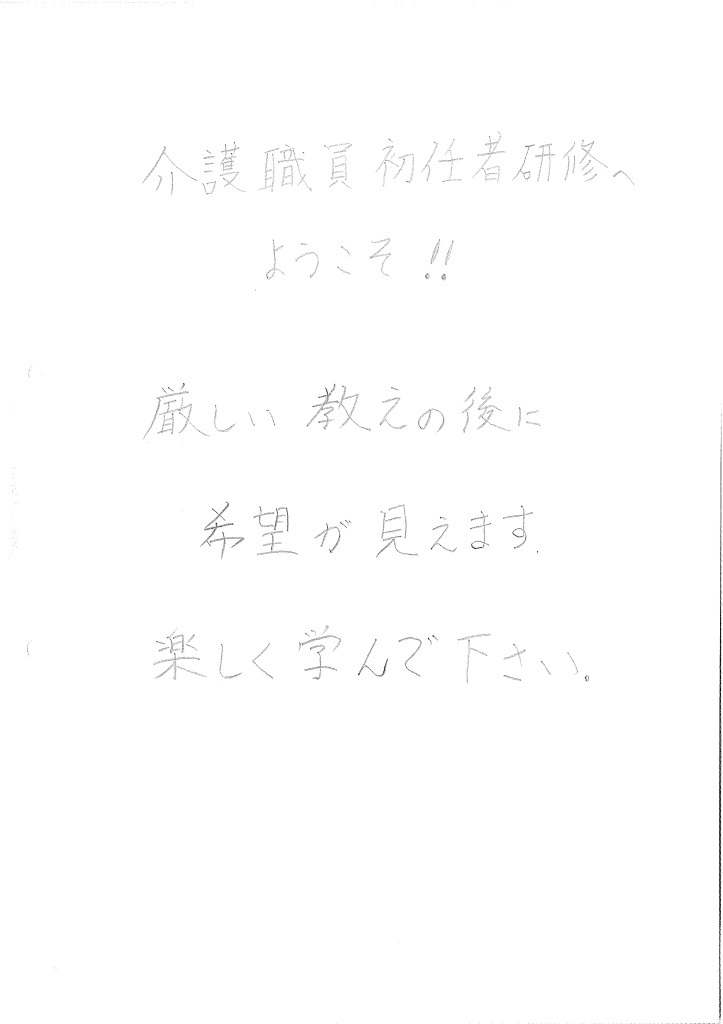 介護職員初任者研修へ
ようこそ!!
厳しい教えの後に
希望が見えます.
楽しく学んで下さい。